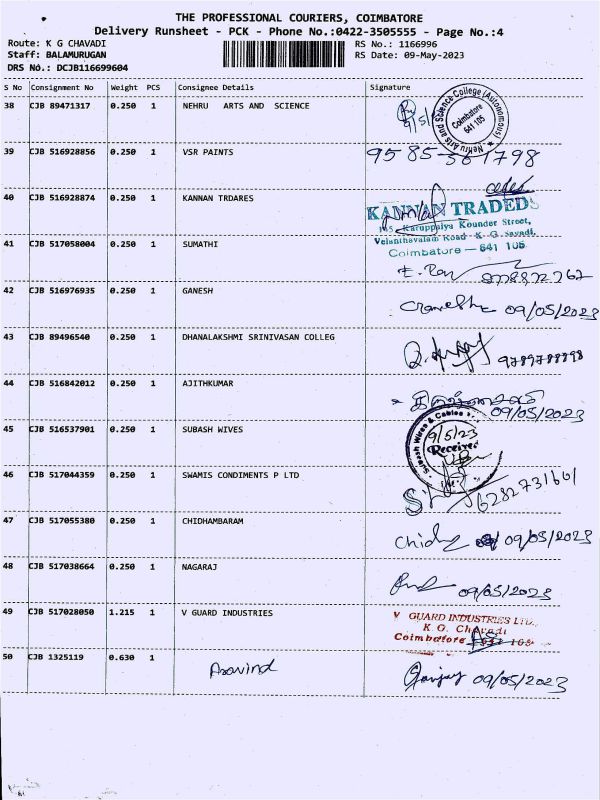 THE PROFESSIONAL COURIERS, COIMBATORE
Delivery Runsheet - PCK - Phone No.:0422-3505555 - Page No.:4
Route: K G CHAVADI RS No.: 1166996
Staff: BALAMURUGAN RS Date: 09-May-2023
DRS No.: DCJB116699604
S No Consignment No Weight PCS Consignee Details Signature
38 CJB 89471317 0.250 1 NEHRU ARTS AND SCIENCE
Nehru Arts and Science College (Autonomous)
Coimbatore
641 105
39 CJB 516928856 0.250 1 VSR PAINTS
40 CJB 516928874 0.250 1 KANNAN TRDARES
KANNAN TRADEDS
Karuppaiya Kounder Street,
Velanthavalam Road K. G. Savadi,
Coimbatore - 641 105
41 CJB 517058004 0.250 1 SUMATHI
42 CJB 516976935 0.250 1 GANESH
Ganesh 09/05/2023
43 CJB 89496540 0.250 1 DHANALAKSHMI SRINIVASAN COLLEG
9789788898
44 CJB 516842012 0.250 1 AJITHKUMAR
09/05/2023
45 CJB 516537901 0.250 1 SUBASH WIVES
Subash Wires & Cables
9/5/23
Received
46 CJB 517044359 0.250 1 SWAMIS CONDIMENTS P LTD
6282731601
47 CJB 517055380 0.250 1 CHIDHAMBARAM
09/05/2023
48 CJB 517038664 0.250 1 NAGARAJ
09/05/2023
49 CJB 517028050 1.215 1 V GUARD INDUSTRIES
V GUARD INDUSTRIES LTD.,
K. G. Chavadi
Coimbatore
50 CJB 1325119 0.630 1 Aravind Sanjay 09/05/2023